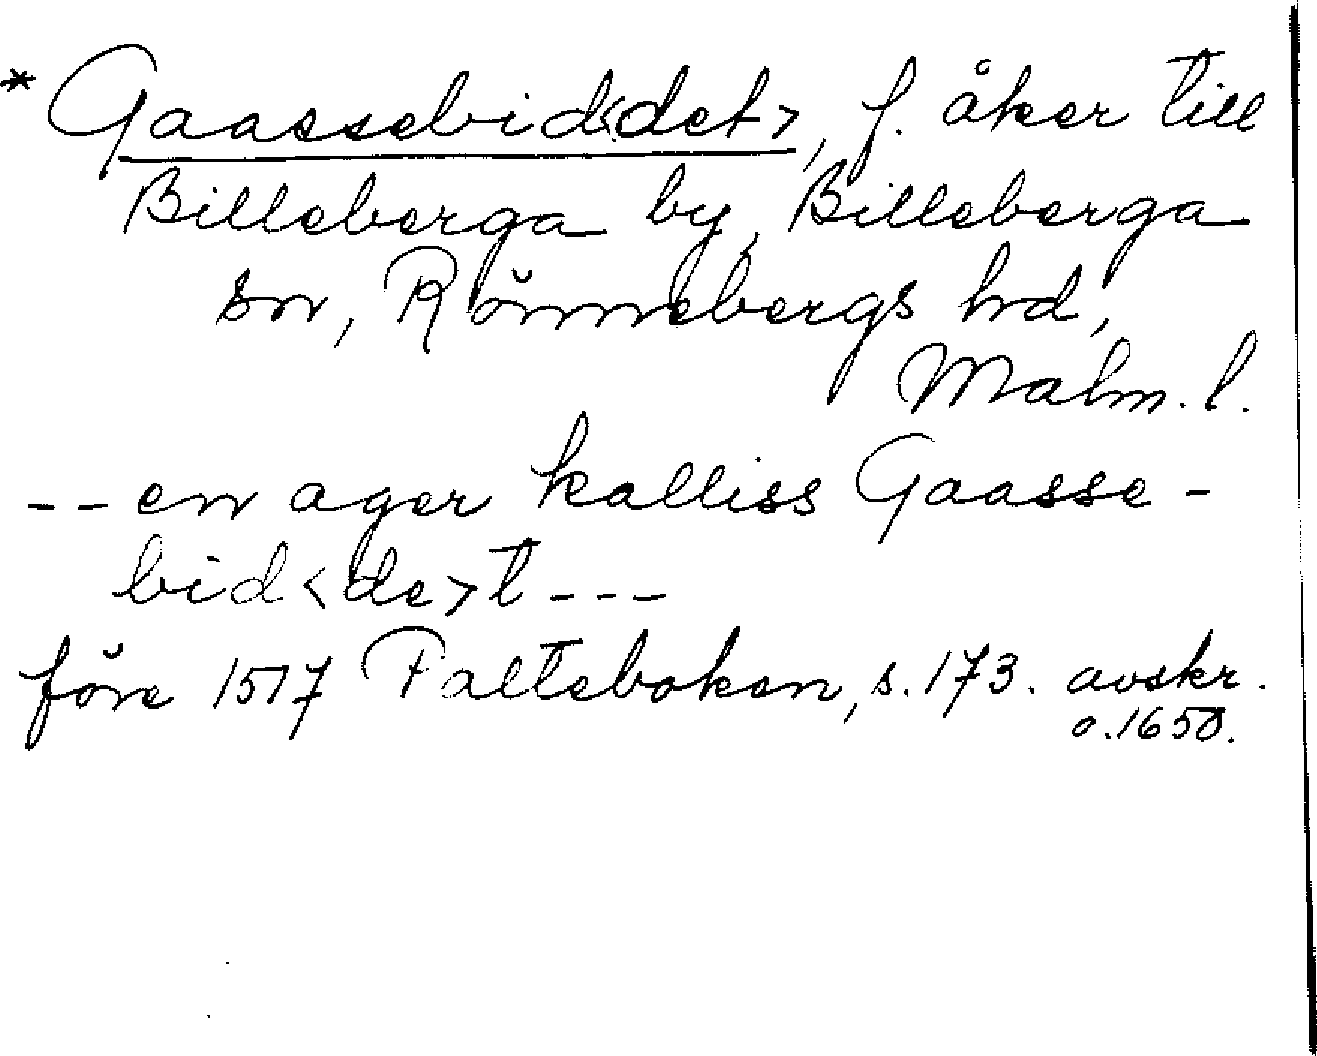 * Gaassebid<det>, f. åker till
Billeberga by, Billeberga
sn, Rönnebergs hd,
Malm. l.
-- en ager kalliss Gaasse-
bid<de>t ---
före 1517 Palteboken, s. 173. avskr.
o. 1650.